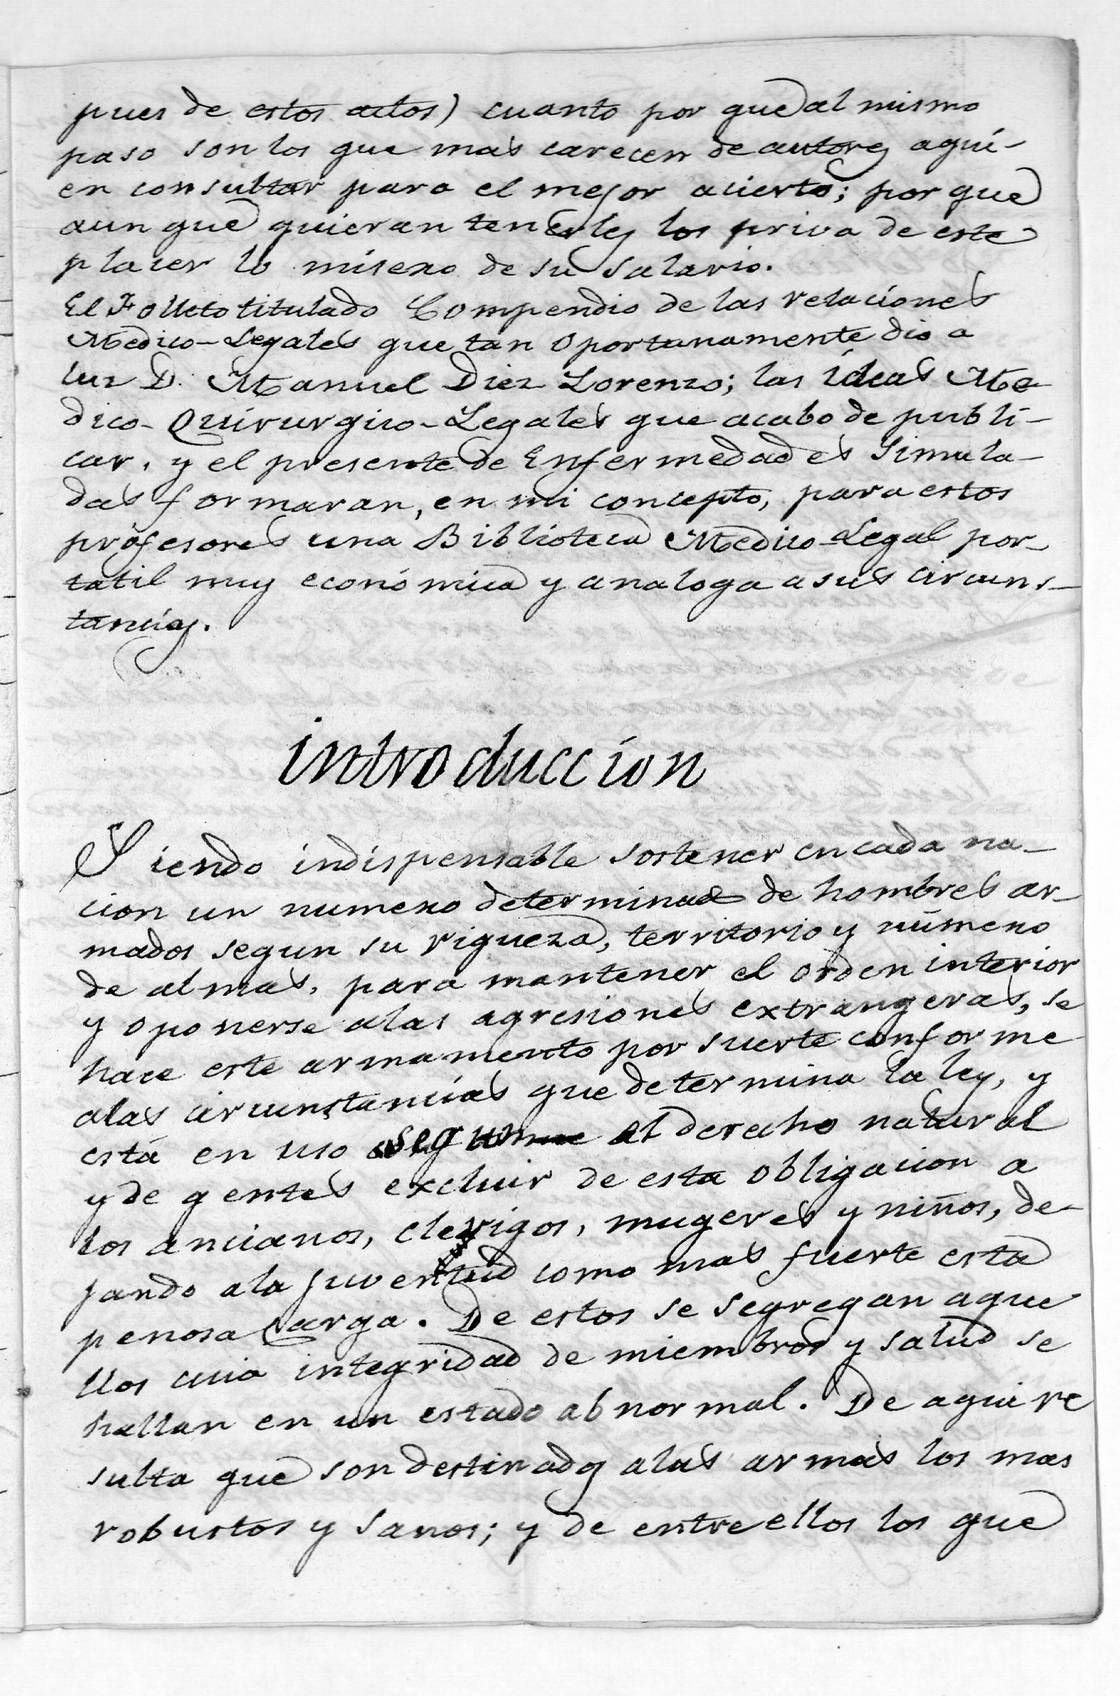 pues de estos actos) cuanto por que al mismo
paso son los que mas carecen de autores aqui-
en consultar para el mejor acierto; por que
aun que quieran tenerles los priva de este
placer lo misero de su salario.
El Folleto titulado Compendio de las relaciones
Medico-Legales que tan oportunamente dio a
luz D. Manuel Diez Lorenzo; las ideas Me-
dico-Quirurgico-Legales que acabo de publi-
car, y el presente de Enfermedades Simula-
das formaran, en mi concepto, para estos
profesores una Biblioteca Medico-Legal por-
tatil muy económica y analoga a sus circuns-
tancias.
introduccion
Siendo indispensable sostener en cada na-
cion un numero determinado de hombres ar-
mados segun su riqueza, territorio y número
de almas, para mantener el orden interior
y oponerse a las agresiones extrangeras, se
hace este armamento por suerte conforme
a las circunstancias que determina la ley, y
está en uso segun el derecho natural
y de gentes excluir de esta obligacion a
los ancianos, clerigos, mugeres y niños, de-
jando a la juventud como mas fuerte esta
penosa carga. De estos se segregan aque
llos cuia integridad de miembros y salud se
hallan en un estado abnormal. De aqui re
sulta que son destinados a las armas los mas
robustos y sanos; y de entre ellos los que